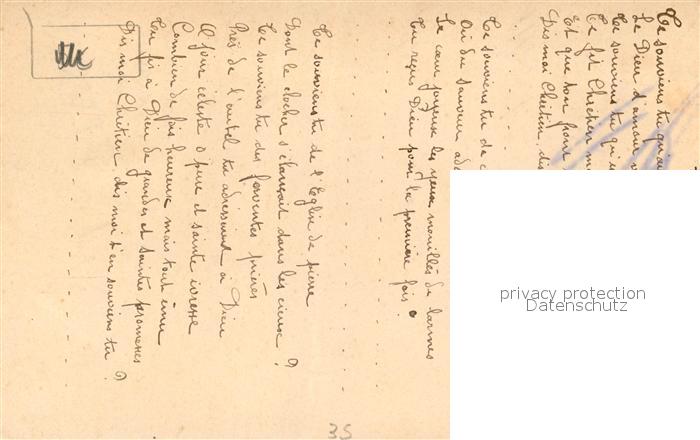 Te souviens tu qu'au
Le Dieu d'amour
Te souviens tu qu'
Te fit Chrétien
Et que ton front
Dis moi Chrétien, dis
Te souviens tu de c
Où du Sauveur
Le cœur joyeux les yeux mouillés de larmes
Tu reçus Dieu pour la première fois.
Te souviens tu de l'Eglise de pierre
Dont le clocher s'élançait dans les cieux ?
Te souviens tu des ferventes prières
Près de l'autel tu adressais à Dieu
O jour céleste o pure et sainte ivresse
Combien de fois heureux mais tout ému
Tu fis à Dieu de grandes et saintes promesses
Dis moi Chrétien dis moi t'en souviens tu ?
35
privacy protection
Datenschutz